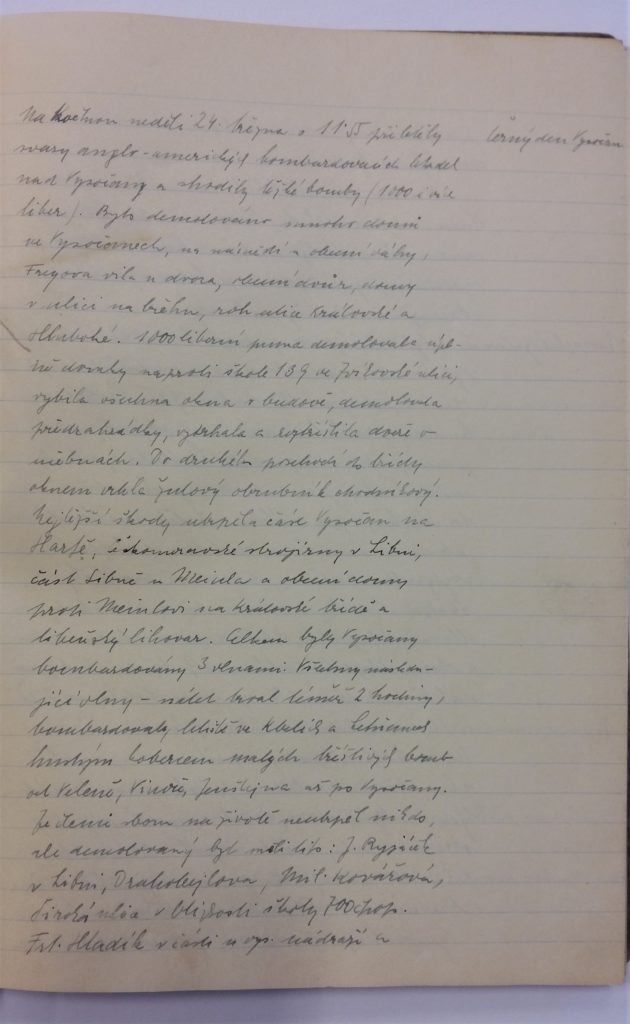 Na Květnou neděli 24. března v 11·55 přiletěly
Černý den Vysočan
svazy anglo-amerických bombardovacích letadel
nad Vysočany a shodily těžké bomby (1000 i více
liber). Bylo demolováno mnoho domů
ve Vysočanech, na náměstí a obecní váhy,
Freyova vila u dvora, obecní dvůr, domy
v ulici na břehu, roh ulice Královské a
Hluboké. 1000 liberní puma demolovala úpl-
ně domky naproti škole 139 ve Zvíkovské ulici,
vybila všechna okna v budově, demolovala
předzahrádky, vytrhala a roztříštila dveře v
učebnách. Do druhého poschodí do třídy
oknem vrhla žulový obrubník chodníkový.
Nejtěžší škody utrpěla část Vysočan na
Harfě, českomoravské strojírny v Libni,
část Libně u Meinla a obecní domy
proti Meinlovi na Královské třídě a
libeňský lihovar. Celkem byly Vysočany
bombardovány 3 vlnami. Všechny následu-
jící vlny – nálet trval téměř 2 hodiny,
bombardovaly letiště ve Kbelích a Letňanech
hustým kobercem malých tříštivých bomb
od Veleně, Vinoře, Jenštejna až po Vysočany.
Ze členů sboru na životě neutrpěl nikdo,
ale demolovaný byt měli tito: J. Rypáček
v Libni, Drahobejlova, Mil. Kovářová,
Široká ulice v blízkosti školy 700 chop.
Frt. Hladík v části u vys. nádraží a